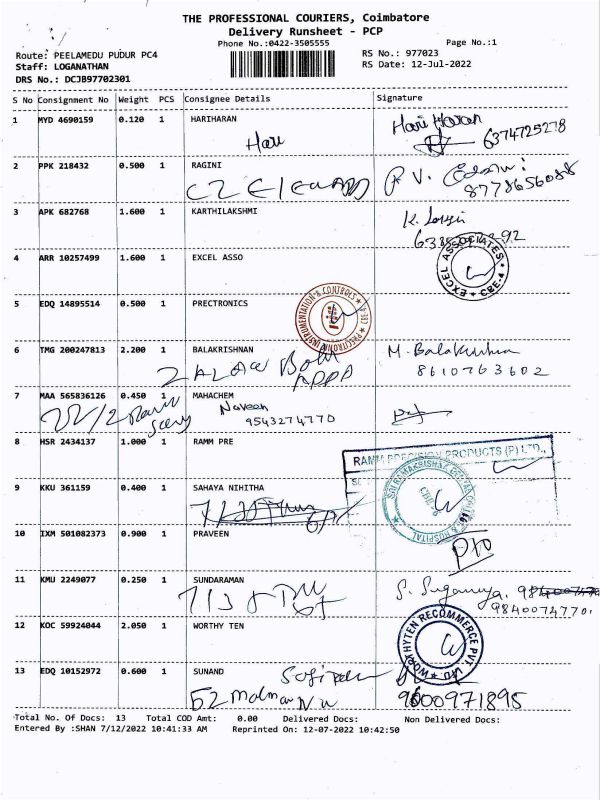 THE PROFESSIONAL COURIERS, Coimbatore
Delivery Runsheet - PCP
Phone No.:0422-3505555
Page No.:1
Route: PEELAMEDU PUDUR PC4
RS No.: 977023
Staff: LOGANATHAN
RS Date: 12-Jul-2022
DRS No.: DCJB97702301
S No Consignment No Weight PCS Consignee Details Signature
1 MYD 4690159 0.120 1 HARIHARAN Hari Haran
Hari 6374725278
2 PPK 218432 0.500 1 RAGINI
8778656088
3 APK 682768 1.600 1 KARTHILAKSHMI
4 ARR 10257499 1.600 1 EXCEL ASSO
EXCEL ASSOCIATES CBE-4
5 EDQ 14895514 0.500 1 PRECTRONICS
6 TMG 200247813 2.200 1 BALAKRISHNAN M. Balakrishna
8610763602
7 MAA 565836126 0.450 1 MAHACHEM
Naveen
9543274770
8 HSR 2434137 1.000 1 RAMM PRE
RAMM PRECISION PRODUCTS (P) LTD.,
9 KKU 361159 0.400 1 SAHAYA NIHITHA
10 IXM 501082373 0.900 1 PRAVEEN
11 KMU 2249077 0.250 1 SUNDARAMAN
9840074770
12 KOC 59924044 2.050 1 WORTHY TEN
WORTHYTEN RECOMMERCE PVT. LTD.
13 EDQ 10152972 0.600 1 SUNAND
52 9600971895
Total No. Of Docs: 13 Total COD Amt: 0.00 Delivered Docs: Non Delivered Docs:
Entered By :SHAN 7/12/2022 10:41:33 AM Reprinted On: 12-07-2022 10:42:50